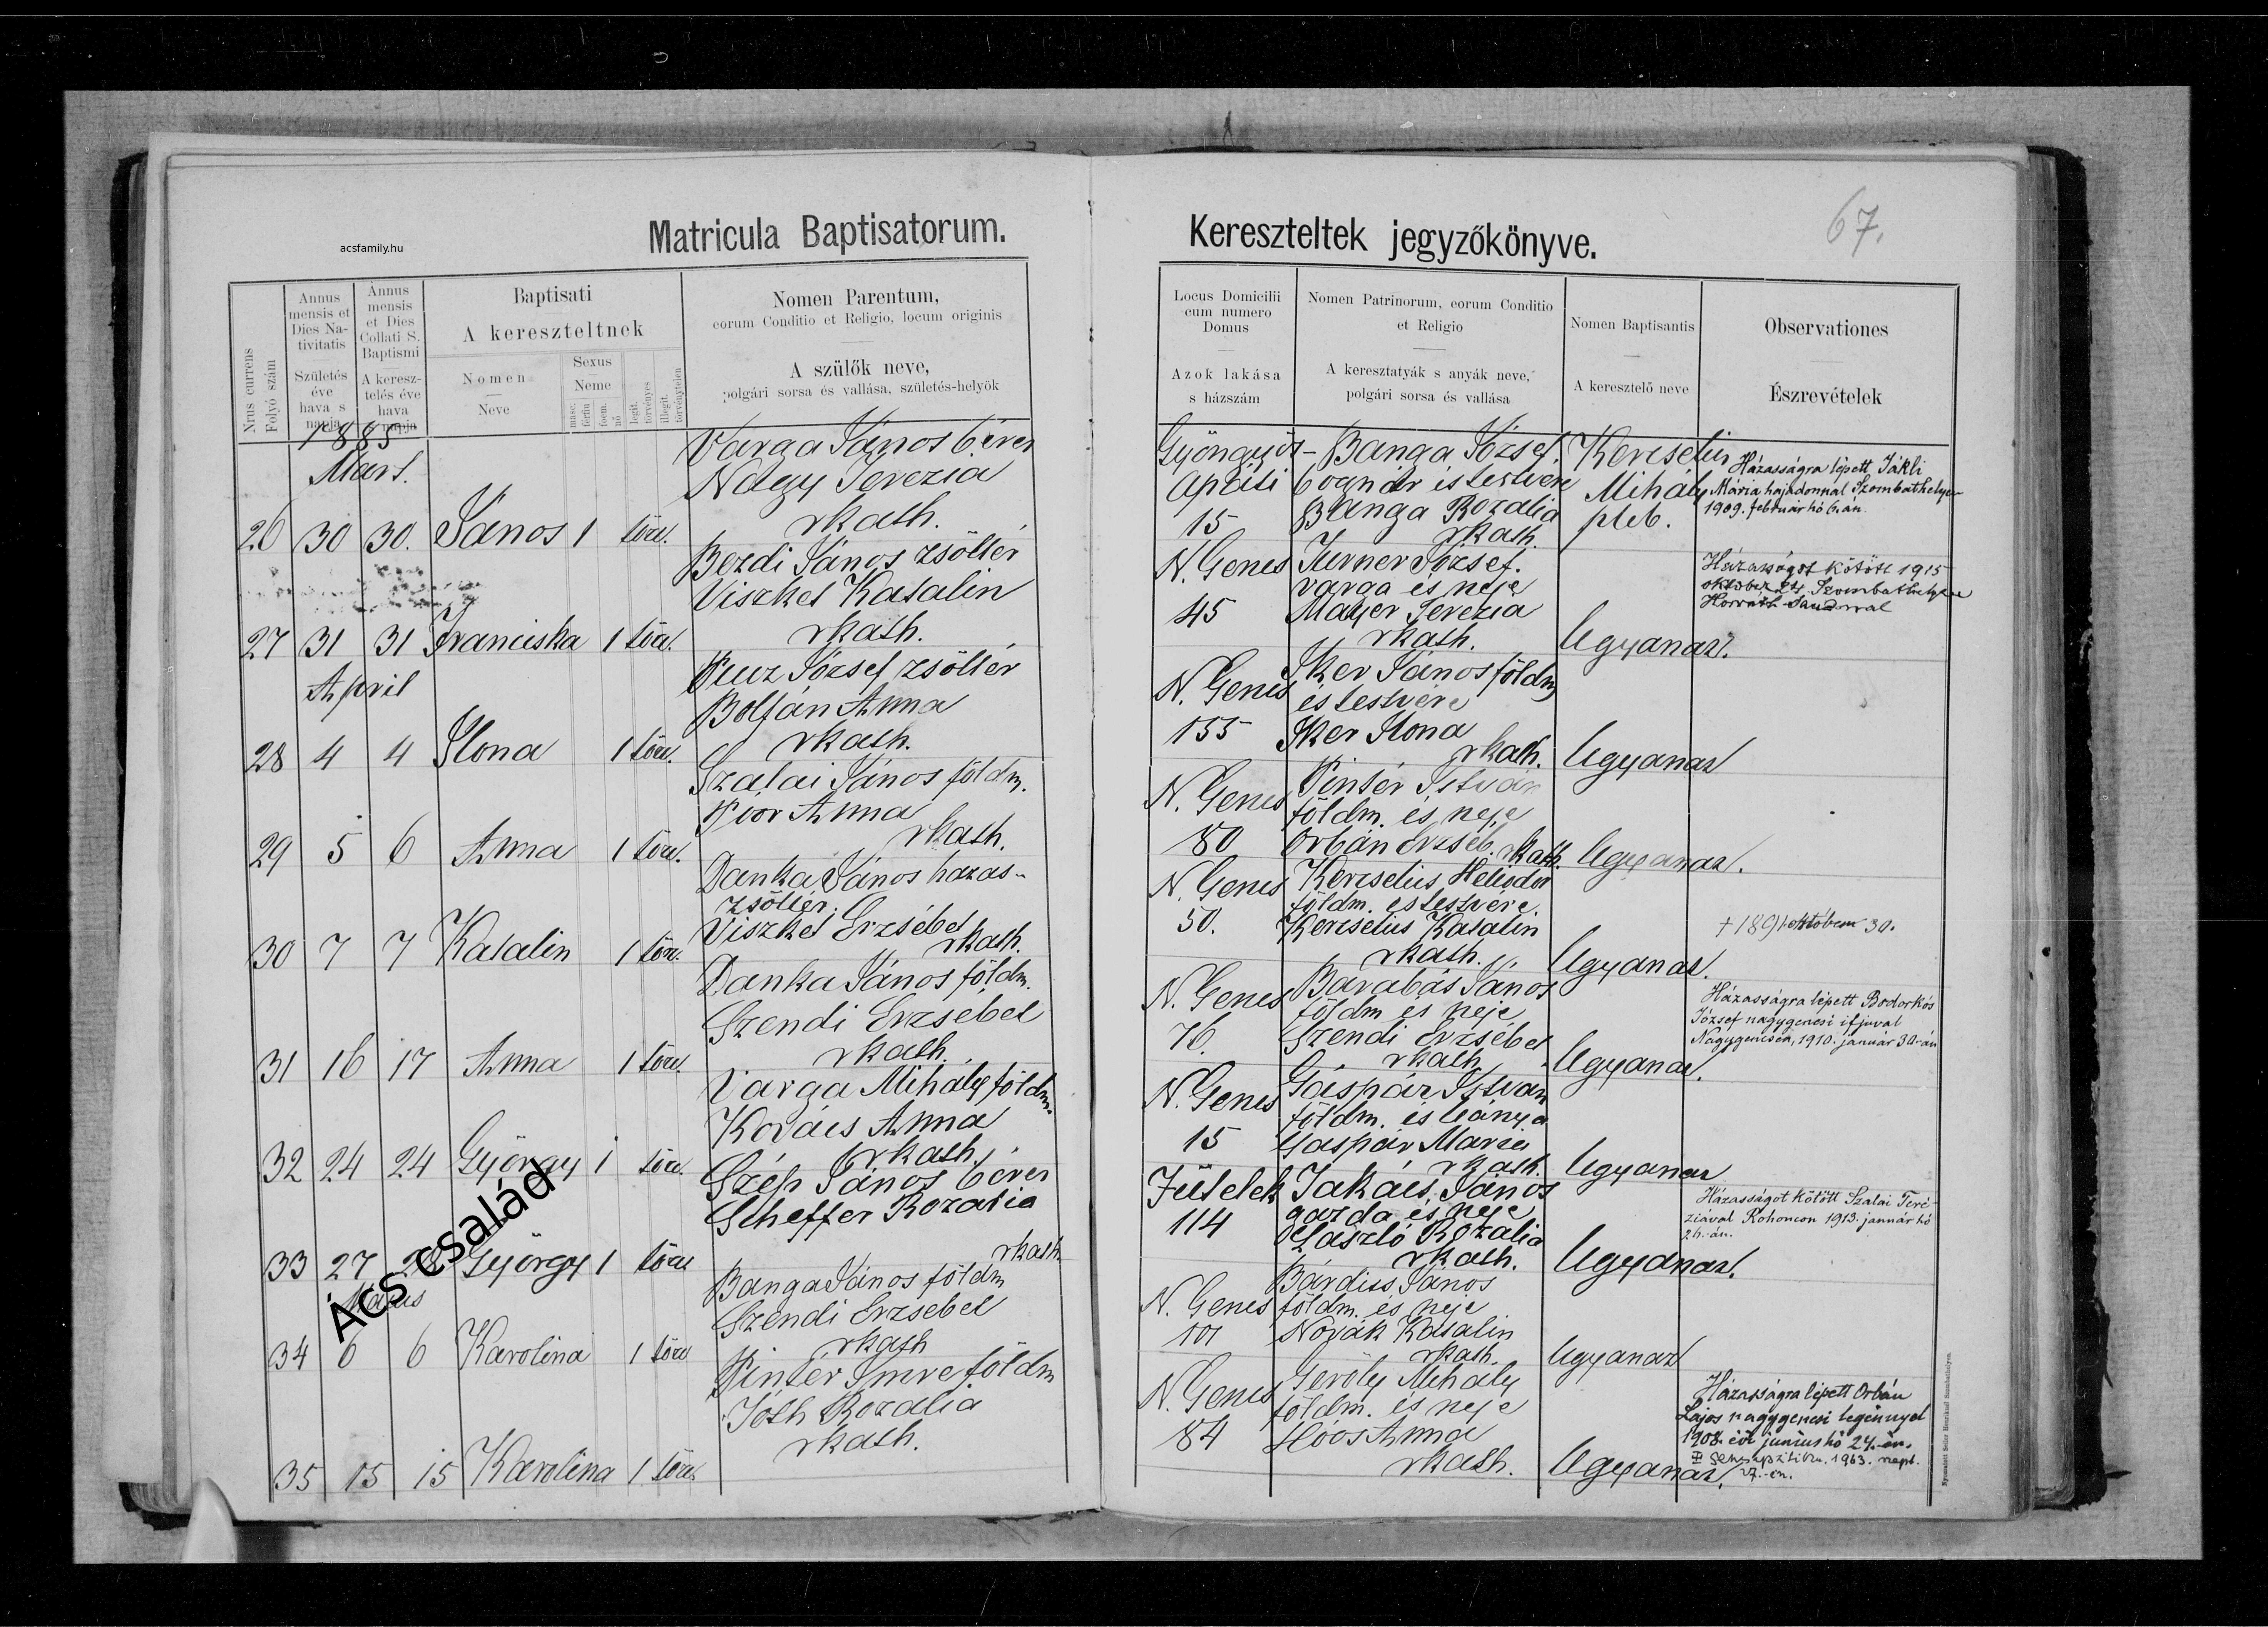 67.
acsfamily.hu
Matricula Baptisatorum.
Kereszteltek jegyzőkönyve.
Nrus currens
Folyó szám
Annus
mensis et
Dies Na-
tivitatis
Születés
éve
hava s
napja
Annus
mensis
et Dies
Collati S.
Baptismi
A keresz-
telés éve
hava
napja
Baptisati
A kereszteltnek
Nomen
Neve
Sexus
Neme
masc.
férfiu
foem.
nő
legit.
törvényes
illegit.
törvénytelen
Nomen Parentum,
eorum Conditio et Religio, locum originis
A szülők neve,
polgári sorsa és vallása, születés-helyök
Locus Domicilii
cum numero
Domus
Azok lakása
s házszám
Nomen Patrinorum, eorum Conditio
et Religio
A keresztatyák s anyák neve,
polgári sorsa és vallása
Nomen Baptisantis
A keresztelő neve
Observationes
Észrevételek
1885
Mart.
Varga János béres
Nagy Terezia
rkath.
26 30 30. János 1 törv.
Bezdi János zsöllér
Viszket Katalin
rkath.
27 31 31 Franciska 1 törv.
April
József zsöllér
Boltján Anna
rkath.
28 4 4 Ilona 1 törv.
Szalai János földm.
Anna
rkath.
29 5 6 Anna 1 törv.
Danka János házas-
zsöllér.
Viszket Erzsébet
rkath.
30 7 7 Katalin 1 törv.
Danka János földm.
Szendi Erzsébet
rkath.
31 16 17 Anna 1 törv.
Varga Mihály földm.
Kovács Anna
rkath.
32 24 24 György 1 törv.
Szép János béres
Scheffer Rozalia
rkath.
33 27 28 György 1 törv
Május
Banga János földm
Szendi Erzsebet
rkath
34 6 6 Karolina 1 törv
Pintér Imre földm
Tóth Rozalia
rkath.
35 15 15 Karolina 1 törv.
Ács család
Gyöngyös-
apáti
15
Banga József.
bognár és testvére
Banga Rozalia
rkath.
Kercselics
Mihály
pleb.
Házasságra lépett Jákli
Mária hajadonnal Szombathelyen
1909. február hó 6.án.
N. Genes
45
Turner József.
varga és neje
Mayer Terezia
rkath.
Ugyanaz.
Házasságot kötött 1915
október Szombathelyen
Horváth
N. Genes
155
Iker János földm
és testvére
Iker Ilona
rkath.
Ugyanaz
N. Genes
80
Pintér István
földm. és neje
Orbán Erzséb. rkath.
Ugyanaz.
N. Genes
50.
Kercselics Heliodor
földm. és testvére
Kercselics Katalin
rkath.
Ugyanaz.
+ 1891 október 30.
N. Genes
76.
Barabás János
földm és neje
Szendi Erzsébet
rkath.
Ugyanaz.
Házasságra lépett Bodorkós
József nagygencsi ifjuval
Nagygencsen, 1910. január 30-án
N. Genes
15
Gáspár István
földm. és leánya
Gáspár Mária
rkath.
Ugyanaz
Fütelek
114
Takács János
gazda és neje
László Rozalia
rkath.
Ugyanaz.
Házasságot kötött Szalai Teré-
ziával Rohoncon 1913. január hó
26.-án.
N. Genes
101
Bárdiss János
földm. és neje
Novák Katalin
rkath.
Ugyanaz
N. Genes
84
Geröly Mihály
földm. és neje
Hoós Anna
rkath.
Ugyanaz.
Házasságra lépett Orbán
Lajos nagygencsi legénnyel
1908. évi junius hó 24.-én.
1963. sept.
27.-én.